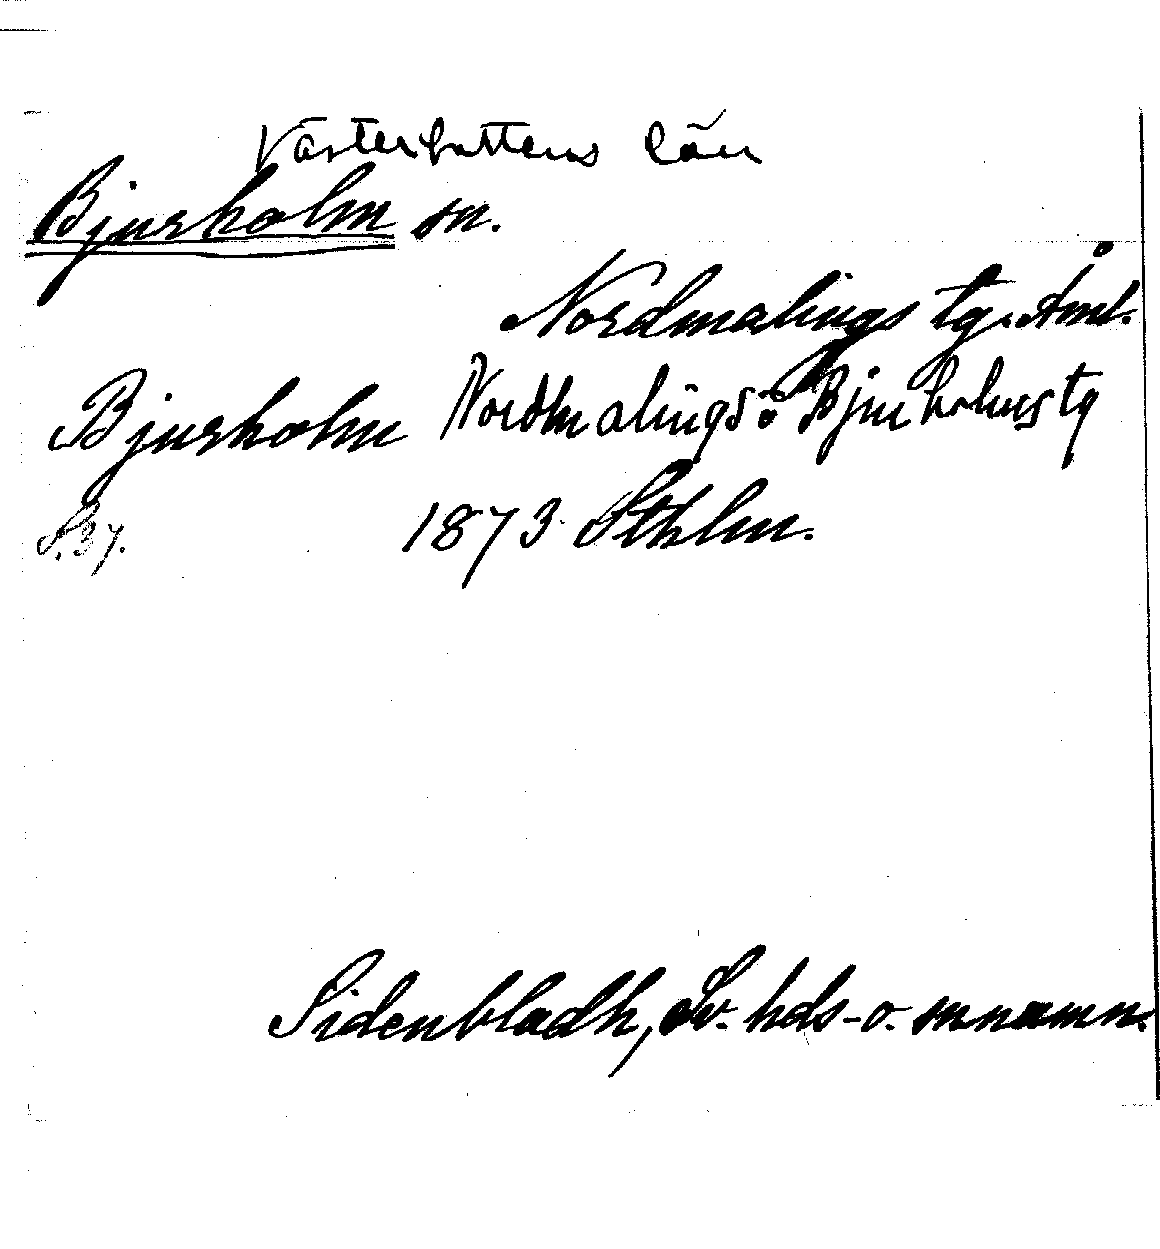 Västerbottens län
Bjurholm sn.
Nordmalings tg. Åml.
Bjurholm Nordmalings o Bjurholms tg
S. 37. 1873 Sthlm.
Sidenbladh, Sv. hds- o. snnamn.